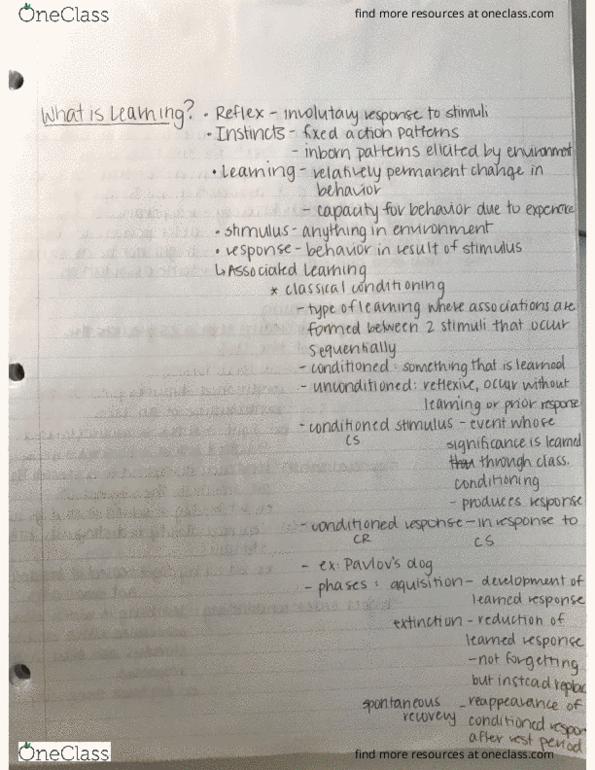 OneClass
find more resources at oneclass.com
What is Learning? • Reflex - involutary response to stimuli
• Instincts - fixed action patterns
- inborn patterns elicited by environment
• Learning - relatively permanent change in
behavior
- capacity for behavior due to experience
• stimulus - anything in environment
• response - behavior in result of stimulus
↳ Associated Learning
* classical conditioning
- type of learning where associations are
formed between 2 stimuli that occur
sequentially
- conditioned: something that is learned
- unconditioned: reflexive, occur without
learning or prior response
- conditioned stimulus - event whose
CS significance is learned
than through class.
conditioning
- produces response
- conditioned response - in response to
CR CS
- ex: Pavlov's dog
- phases: aquisition - development of
learned response
extinction - reduction of
learned response
- not forgetting
but instead replac
spontaneous - reappearance of
recovery conditioned respon
after rest period
OneClass
find more resources at oneclass.com